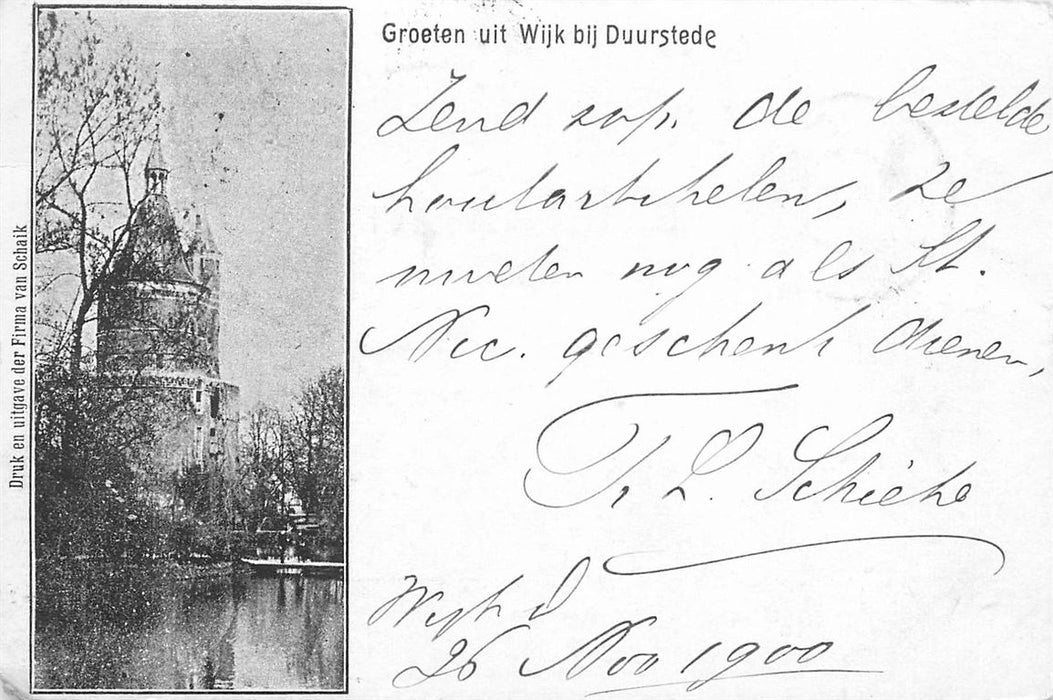 Groeten uit Wijk bij Duurstede
Zend sop. de bestelde
houtartikelen, ze
moeten nog als St.
Nic. geschenk dienen,
L. Schiehe
Wijk d
26 Nov 1900
Druk en uitgave der Firma van Schaik